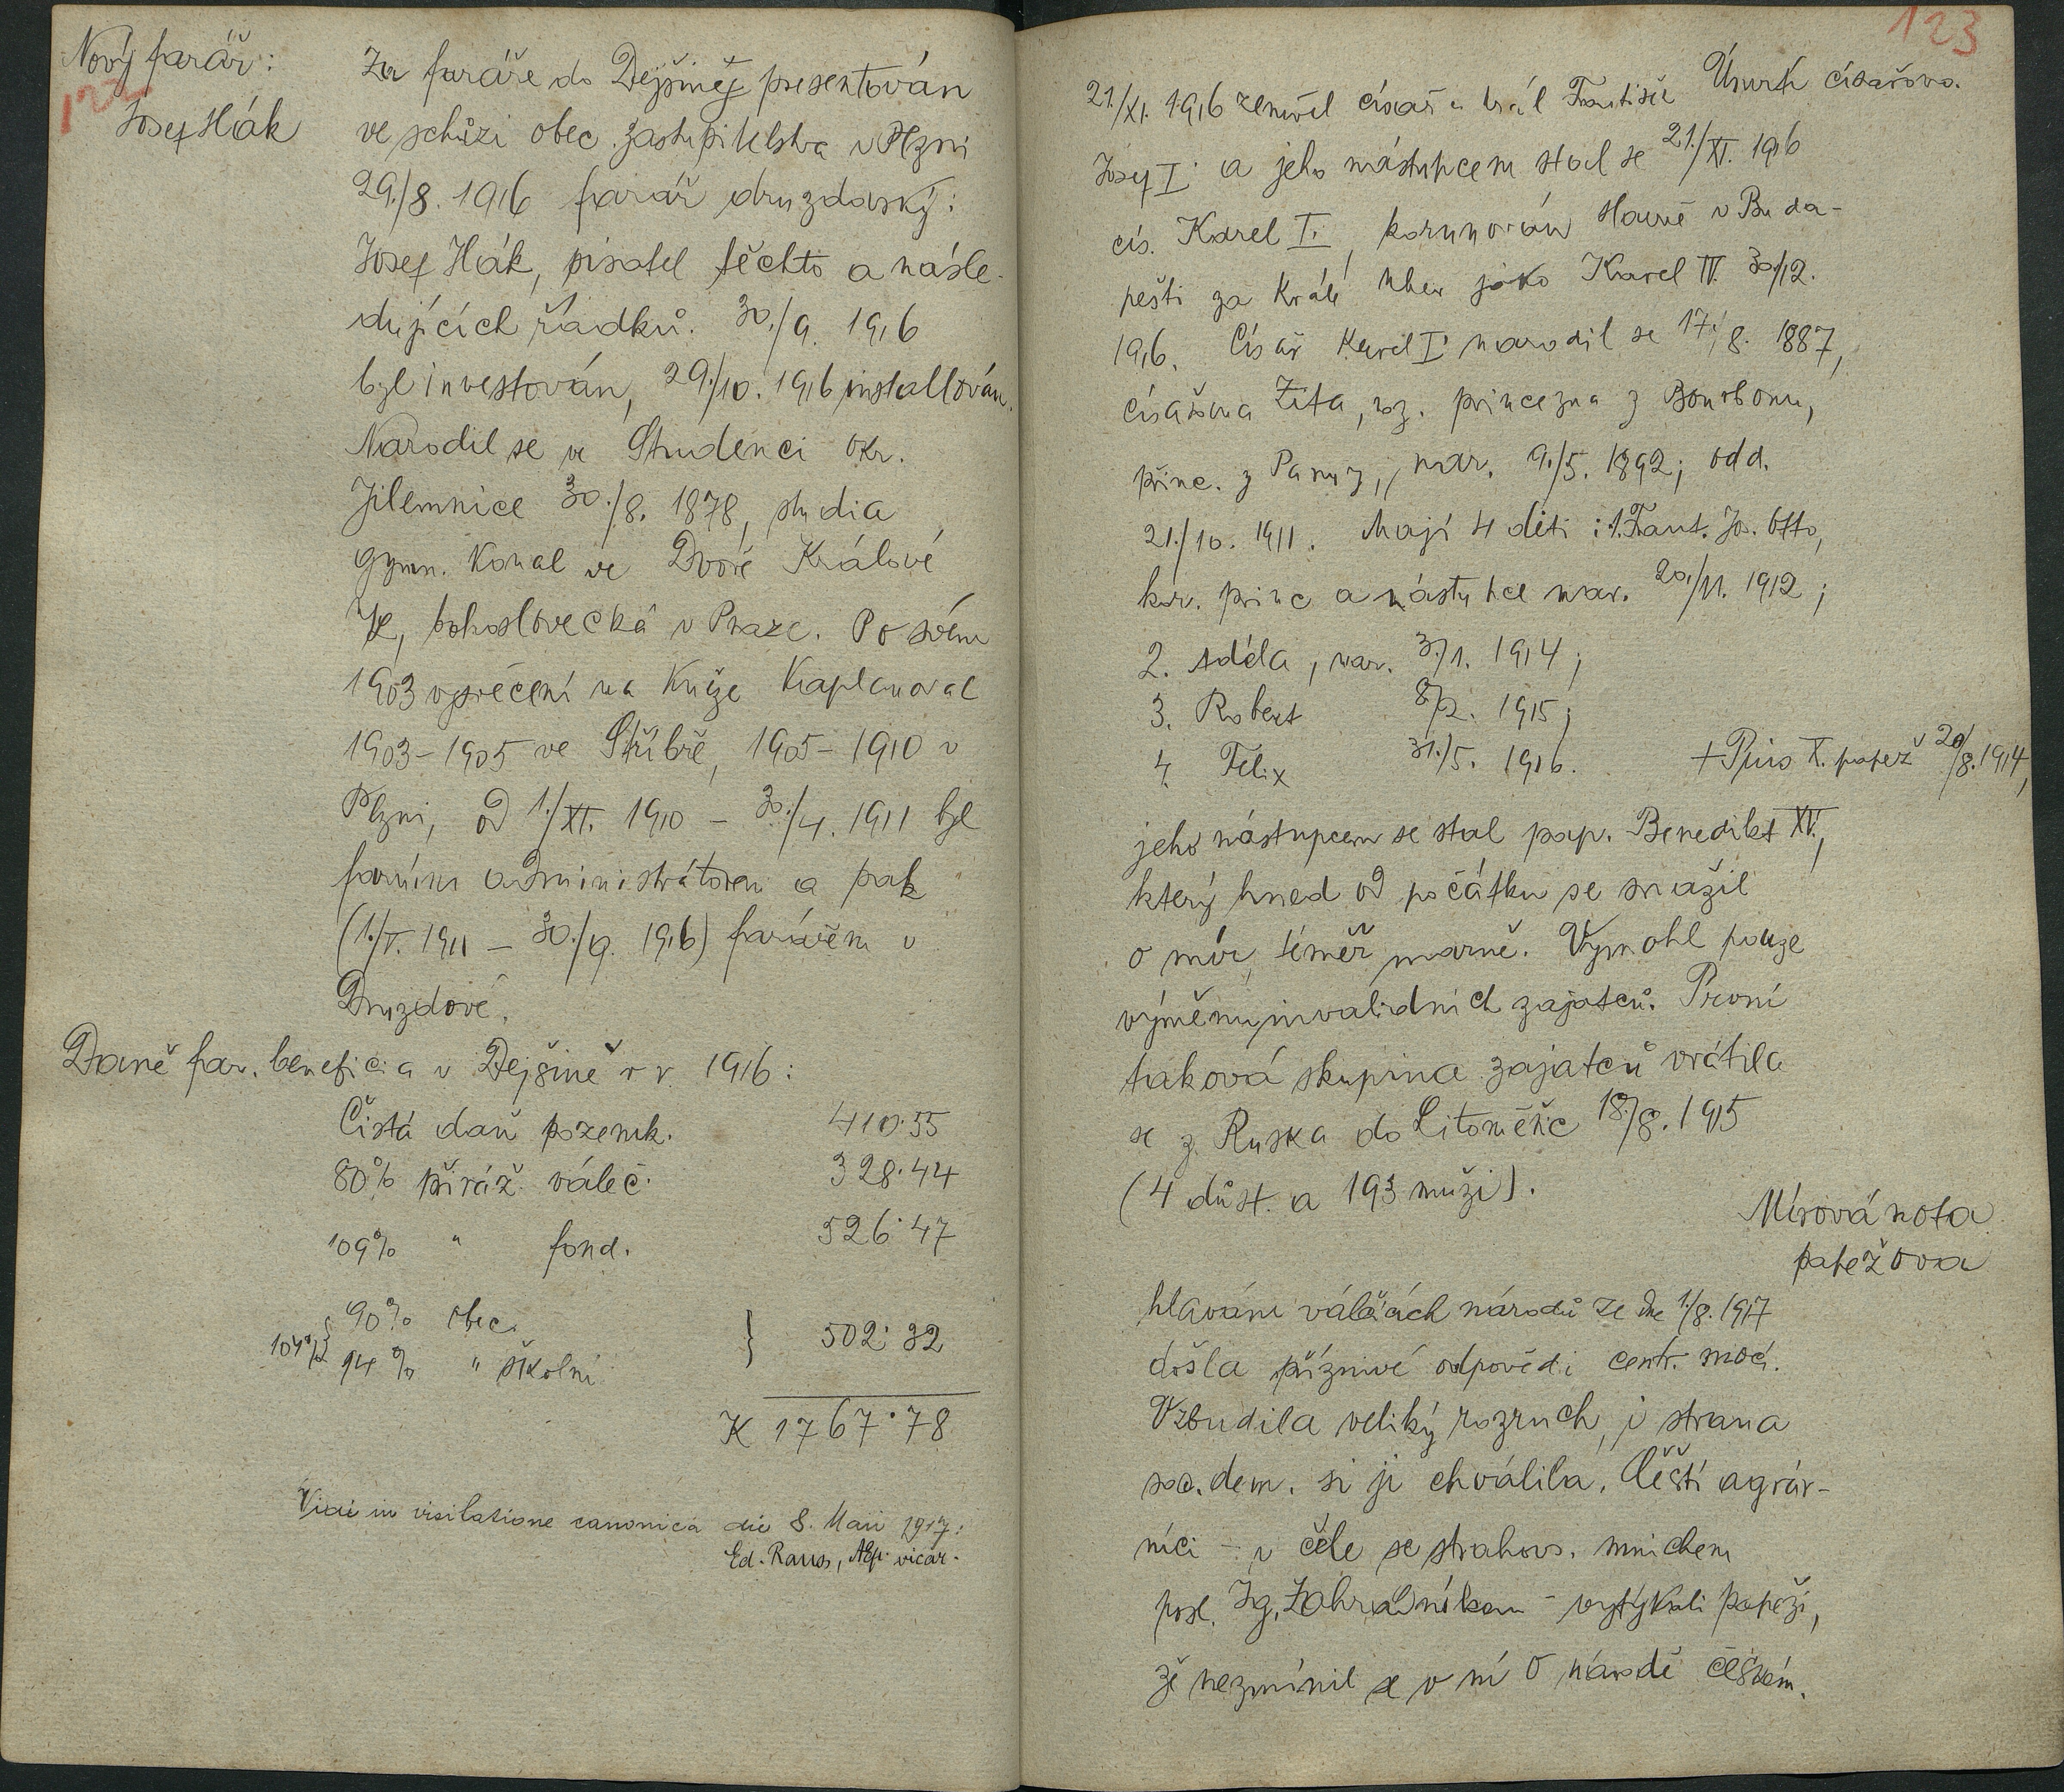 Nový farář:
122
Josef Hák
Za faráře do Dejšiné presentován
ve schůzi obec. zastupitelstva v Plzni
29./8. 1916 farář druzdovský:
Josef Hák, pisatel těchto a násle-
dujících řádků. 30./9. 1916
byl investován, 29./10. 1916 installován.
Narodil se ve Studenci okr.
Jilemnice 30./8. 1878, studia
gymn. konal ve Dvoře Králové
n/L, bohoslovecká v Praze. Po svém
1903 vysvěcení na kněze kaplanoval
1903-1905 ve Stříbře, 1905-1910 v
Plzni, od 1./XI. 1910 - 30./4. 1911 byl
farním administrátorem a pak
(1./V. 1911 - 30./9. 1916) farářem v
Druzdově.
Daně far. beneficia v Dejšině v r. 1916:
Čistá daň pozemk. 410·55
80% přiráž. váleč. 328·44
109% " fond. 526·47
90% obec.
104% } 502·32
14% " školní
K 1767·78
Vidi in visitatione canonica die 8. Maii 1917:
Ed. Rauss, AEp. vicar.
123
Úmrtí císařovo.
21./XI. 1916 zemřel císař a král František
Josef I. a jeho nástupcem stal se 21./XI. 1916
cís. Karel I., korunován slavně v Buda-
pešti za krále uher. jako Karel IV. 30/12.
1916. Císař Karel I. narodil se 17./8. 1887,
císařovna Zita, roz. princezna z Bourbonu,
princ. z Parmy, nar. 9./5. 1892; odd.
21./10. 1911. Mají 4 děti: 1. Frant. Jos. Otto,
kor. princ a nástupce nar. 20./11. 1912;
2. Adéla, nar. 3./1. 1914;
3. Robert 8/2. 1915;
4. Felix 31./5. 1916.
+ Pius X. papež 20/8. 1914,
jeho nástupcem se stal pap. Benedikt XV.,
který hned od počátku se snažil
o mír, téměř marně. Vymohl pouze
výměnu invalidních zajatců. První
taková skupina zajatců vrátila
se z Ruska do Litoměřic 18./8. 1915
(4 důst. a 193 muži).
Mírová nota
papežova
hlavám válčících národů ze dne 1./8. 1917
došla příznivé odpovědi centr. mocí.
Vzbudila veliký rozruch, i strana
soc. dem. si ji chválila. Čeští agrár-
níci - v čele se strahovs. mnichem
posl. Ig. Zahradníkem - vytýkali papeži,
že nezmínil se v ní o národě českém.